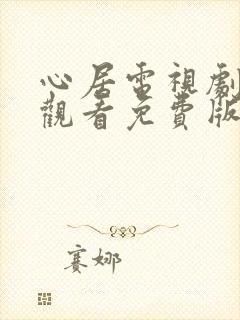 心居電視劇
觀看免費版
賽娜